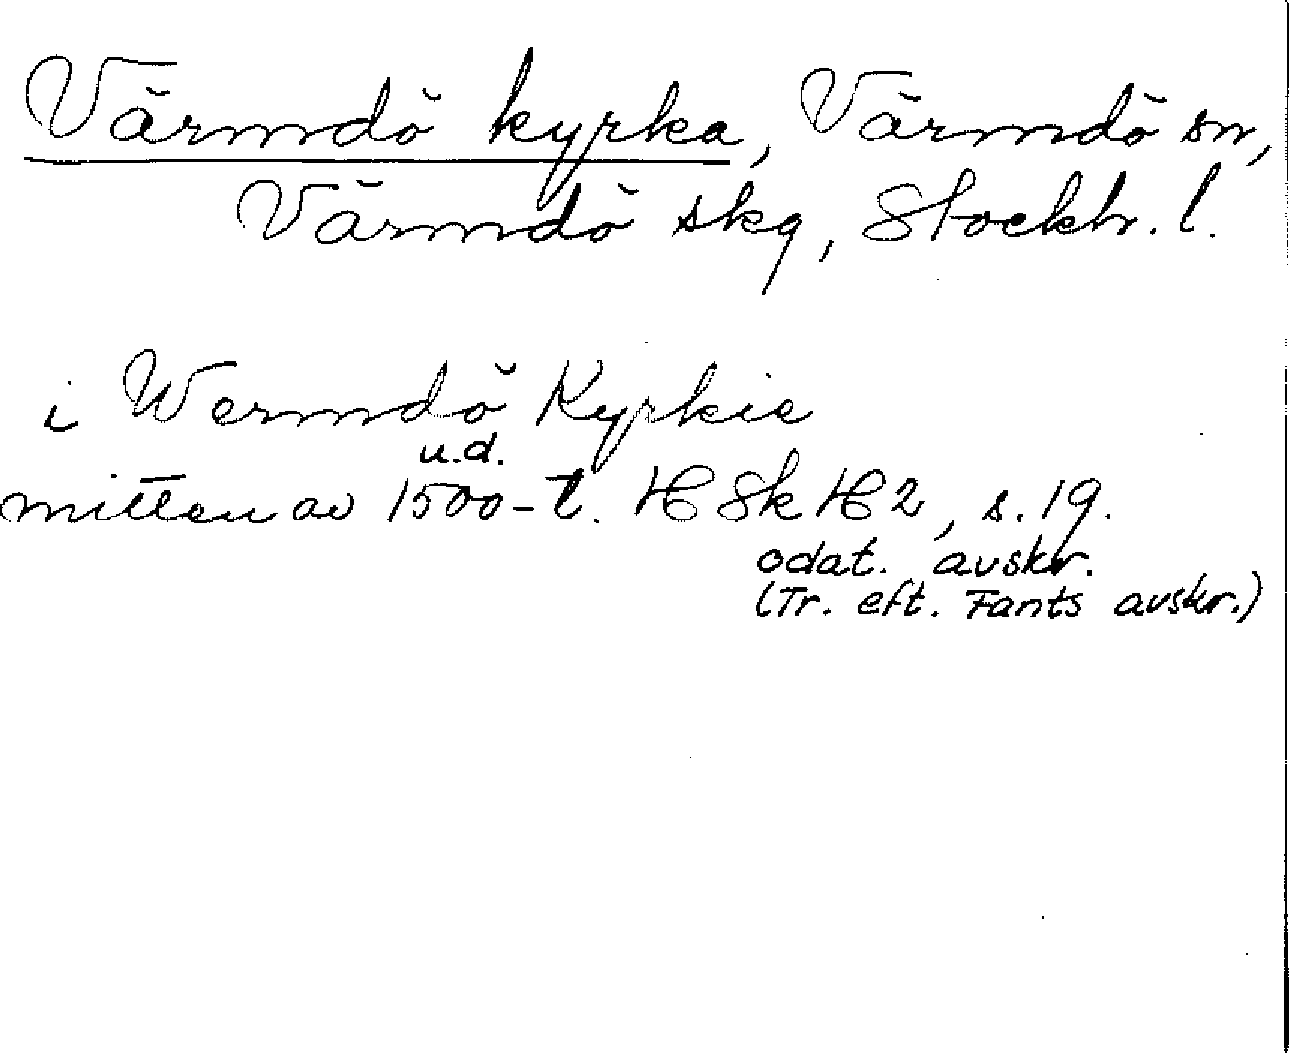 Värmdö kyrka, Värmdö sn,
Värmdö skg, Stockh. l.
i Wermdö Kyrkie
u.d.
mitten av 1500-t. HSkH2, s. 19.
odat. avskr.
(Tr. eft. Fants avskr.)